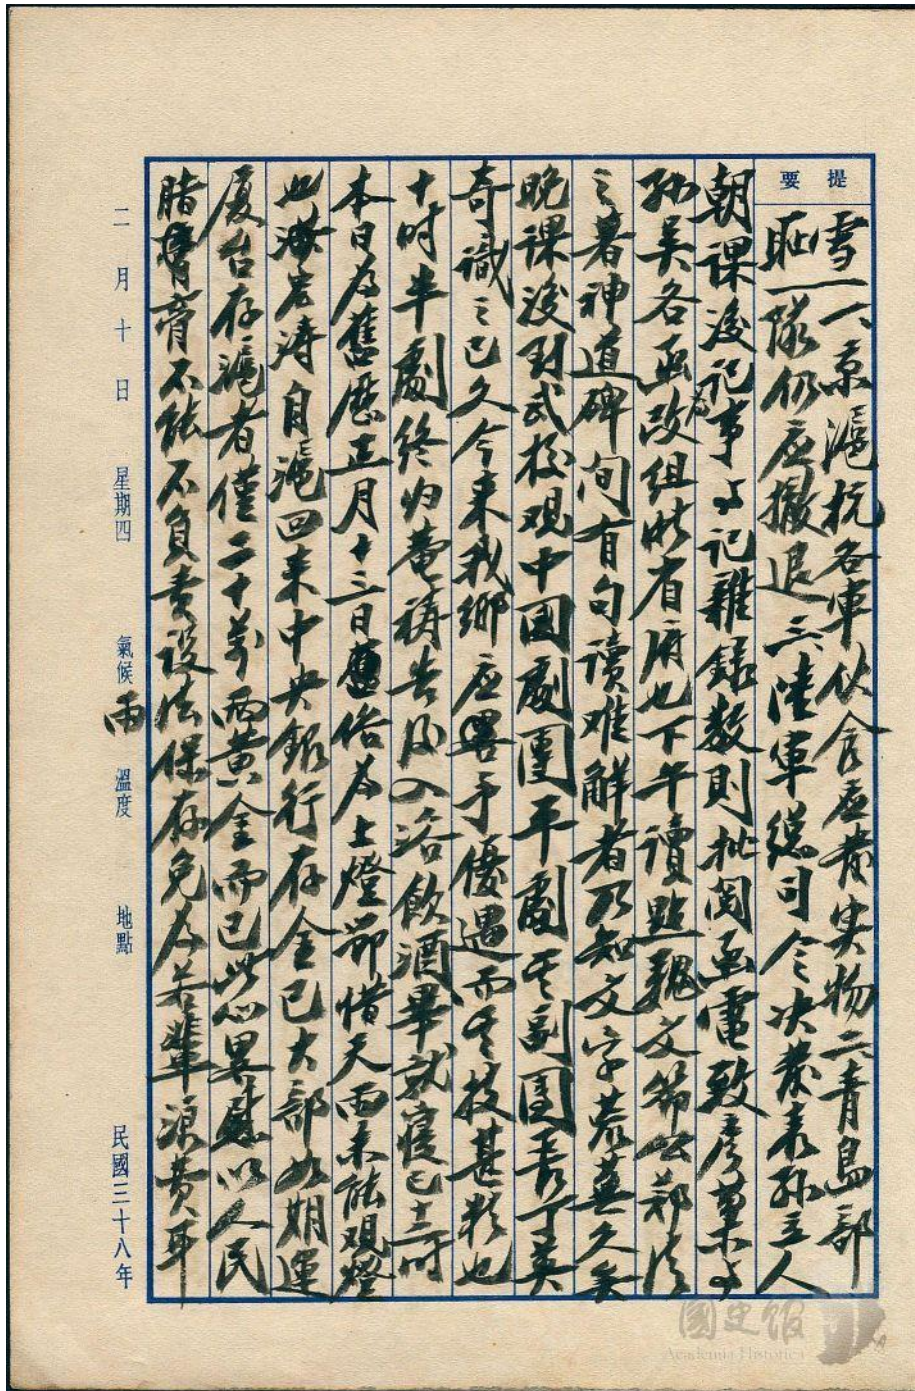 提要
雪一、京滬杭各軍伙食應發実物二、青島部
恥隊仍應撤退三、陸軍總司令決發表孫立人
朝課後記事与記雜錄教則批閱函電致彥棻与
孫吳各函為改組浙省府也下午讀點魏文節公郑清
之著神道碑间有句讀难解者乃知文字荒蕪久矣
晚課後到武校观中國劇團平劇其副團長丁英
奇識之已久今来我鄉应畧予優遇而其技甚精也
十时半劇终归菴禱告後入浴飲酒畢就寢已十二时
本日為舊歷正月十三日舊俗為上燈節惜天雨未能观燈
也周宏涛自滬回来中央銀行存金已大部如期運
廈台存滬者僅二十萬両黄金而已此心畧慰以人民
脂膏不能不負责設法保存免為若輩浪费耳
二月十日 星期四 氣候 雨 溫度 地點 民國三十八年
國史館
Academia Historica